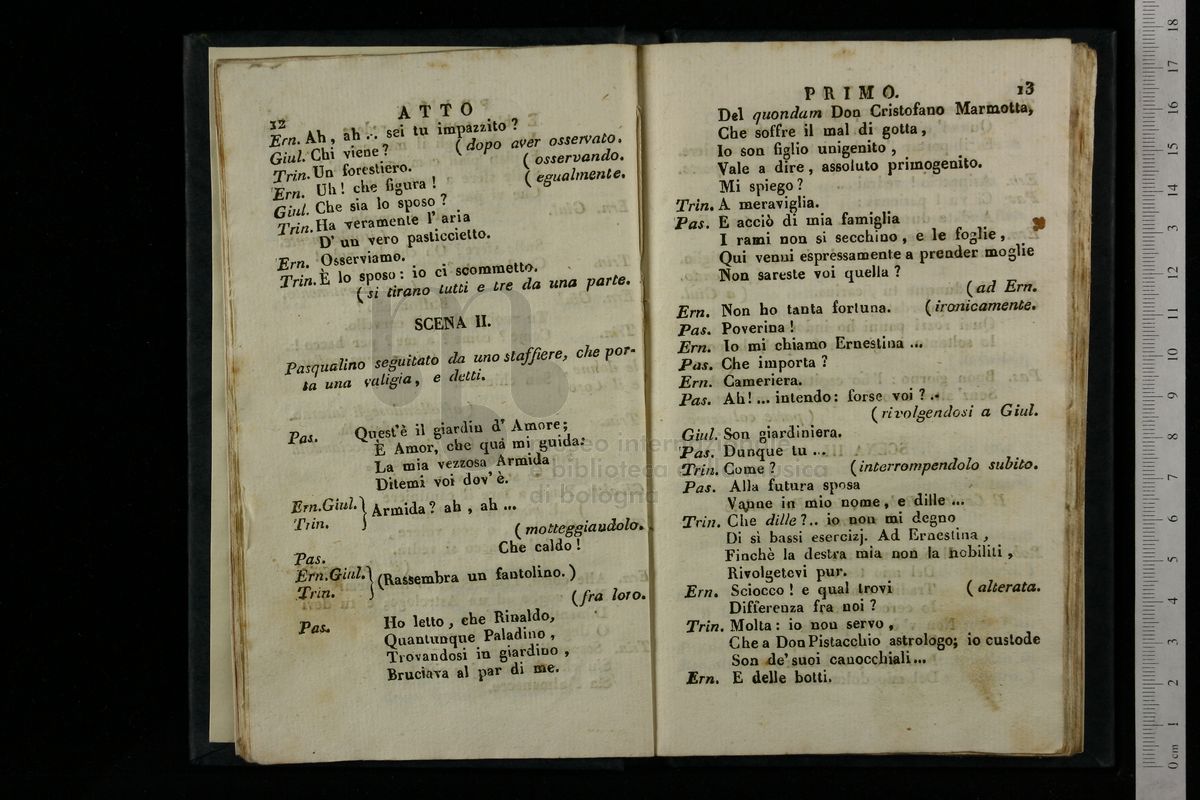 12
ATTO
Ern. Ah, ah ... sei tu impazzito?
Giul. Chi viene? (dopo aver osservato.
Trin. Un forestiero. (osservando.
Ern. Uh! che figura! (egualmente.
Giul. Che sia lo sposo?
Trin. Ha veramente l'aria
D'un vero pasticcietto.
Ern. Osserviamo.
Trin. È lo sposo: io ci scommetto.
(si tirano tutti e tre da una parte.
SCENA II.
Pasqualino seguitato da uno staffiere, che por-
ta una valigia, e detti.
Pas. Quest'è il giardin d'Amore;
E Amor, che quà mi guida:
La mia vezzosa Armida
Ditemi voi dov'è.
Ern. Giul. } Armida? ah, ah ...
Trin.
(motteggiandolo.
Pas. Che caldo!
Ern. Giul. } (Rassembra un fantolino.)
Trin.
(fra loro.
Pas. Ho letto, che Rinaldo,
Quantunque Paladino,
Trovandosi in giardino,
Bruciava al par di me.
PRIMO.
13
Del quondam Don Cristofano Marmotta,
Che soffre il mal di gotta,
Io son figlio unigenito,
Vale a dire, assoluto primogenito.
Mi spiego?
Trin. A meraviglia.
Pas. E acciò di mia famiglia
I rami non si secchino, e le foglie,
Qui venni espressamente a prender moglie
Non sareste voi quella?
(ad Ern.
Ern. Non ho tanta fortuna. (ironicamente.
Pas. Poverina!
Ern. Io mi chiamo Ernestina ...
Pas. Che importa?
Ern. Cameriera.
Pas. Ah! ... intendo: forse voi? ..
(rivolgendosi a Giul.
Giul. Son giardiniera.
Pas. Dunque tu ...
Trin. Come? (interrompendolo subito.
Pas. Alla futura sposa
Vanne in mio nome, e dille ...
Trin. Che dille?.. io non mi degno
Di sì bassi esercizj. Ad Ernestina,
Finchè la destra mia non la nobiliti,
Rivolgetevi pur.
Ern. Sciocco! e qual trovi (alterata.
Differenza fra noi?
Trin. Molta: io non servo,
Che a Don Pistacchio astrologo; io custode
Son de' suoi canocchiali...
Ern. E delle botti.
museo internazionale
e biblioteca della musica
di bologna
0 cm 1 2 3 4 5 6 7 8 9 10 11 12 13 14 15 16 17 18